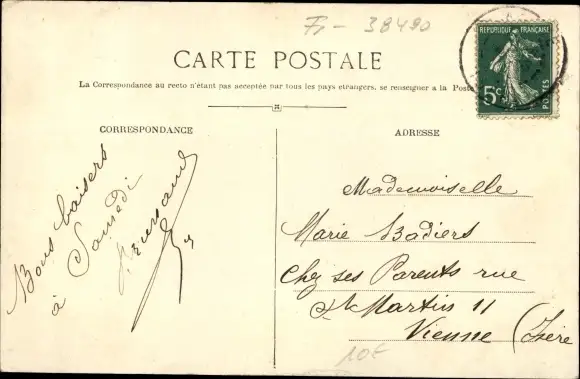 Fr - 38490
CARTE POSTALE
La Correspondance au recto n'étant pas acceptée par tous les pays etrangers, se renseigner a la Poste
REPUBLIQUE FRANÇAISE
5c
POSTES
CORRESPONDANCE
Bons baisers
à Samedi
ADRESSE
Mademoiselle
Marie Badiers
Chez ses Parents rue
St Martin 11
Vienne (Isère
10€